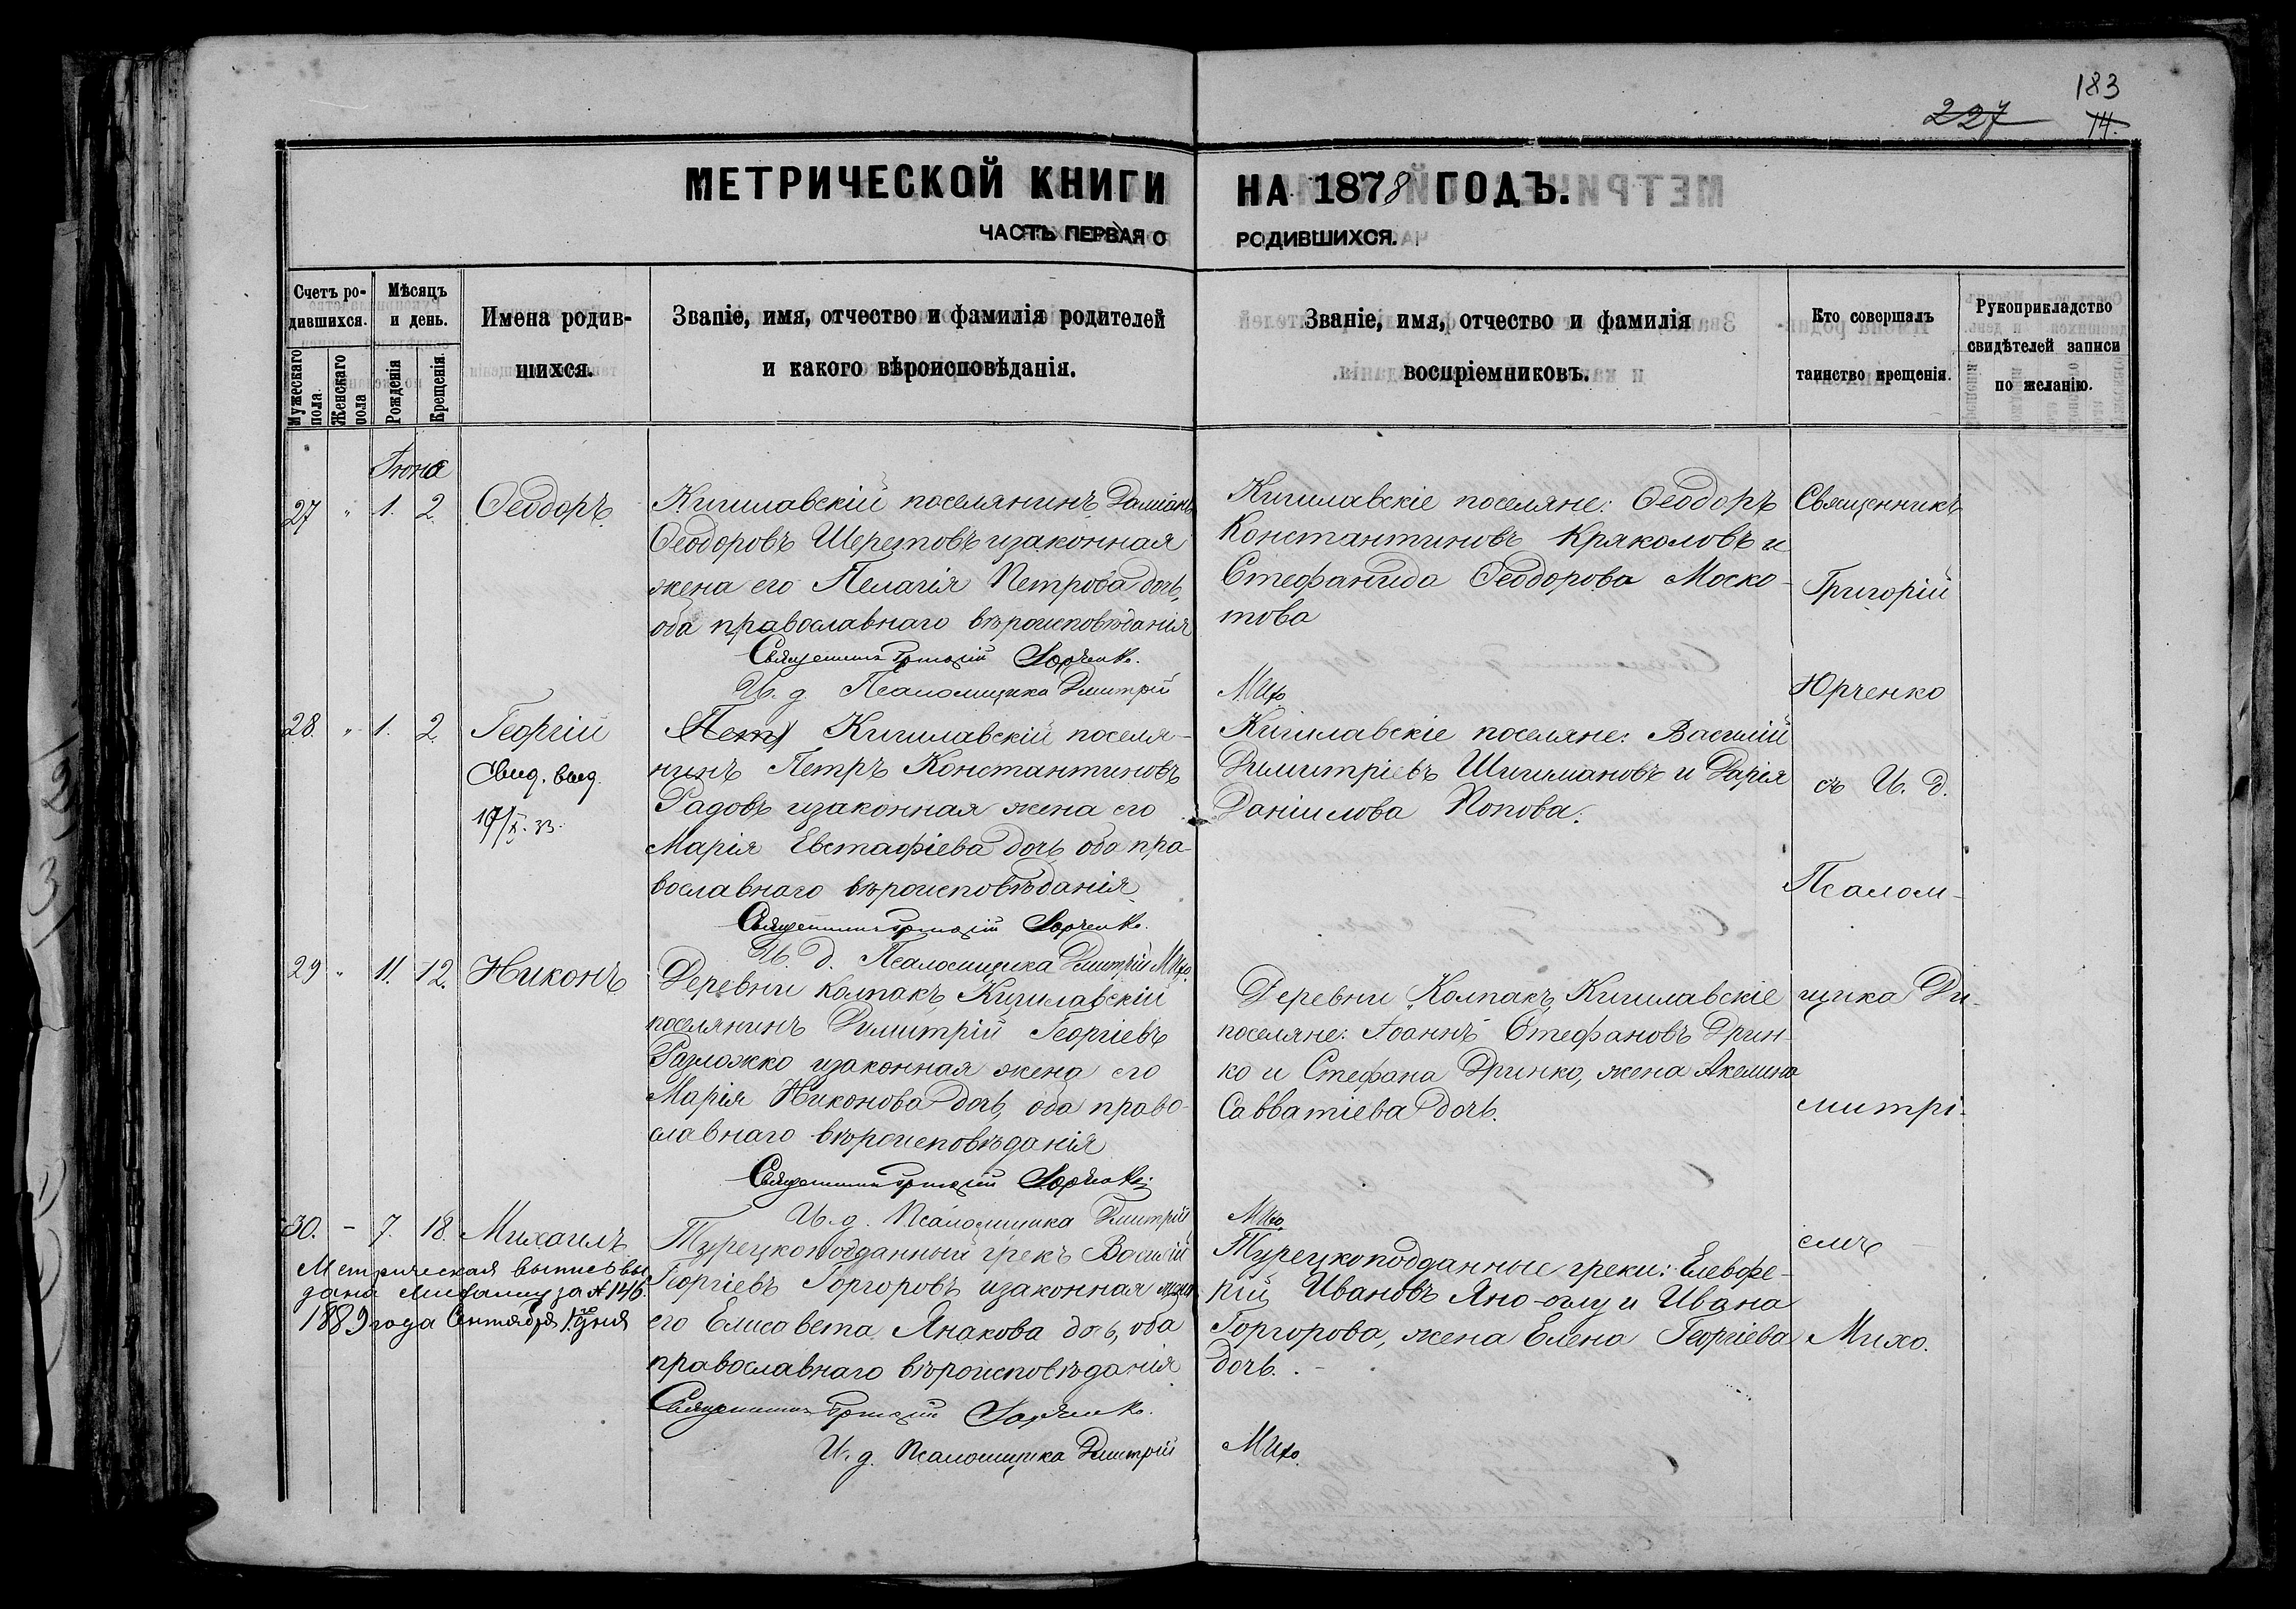 183
227
14.
МЕТРИЧЕСКОЙ КНИГИ НА 1878 ГОДЪ.
ЧАСТЬ ПЕРВАЯ О РОДИВШИХСЯ.
Счетъ ро-
дившихся.
Мужескаго пола.
Женскаго пола
Мѣсяцъ
и день.
Рожденія
Крещенія.
Имена родив-
шихся.
Званіе, имя, отчество и фамилія родителей
и какого вѣроисповѣданія.
Званіе, имя, отчество и фамилія
воспріемниковъ.
Кто совершалъ
таинство крещенія.
Рукоприкладство
свидѣтелей записи
по желанію.
Іюнь
27 " 1. 2. Ѳеодоръ
Кишлавскій поселянинъ Даміанъ
Ѳеодоровъ Шереметовъ изаконная
жена его Пелагія Петрова дочь,
оба православнаго вѣроисповѣданія
Священникъ Григорій Юрченко.
И. д. Псаломщика Дмитрій Михо
Кишлавскіе поселяне: Ѳеодоръ
Константиновъ Кряколовъ и
Стефанида Ѳеодорова Моско-
това
28. " 1. 2. Георгій
Свид. выд.
17/X. 33.
(Пет) Кишлавскій поселя-
нинъ Петръ Константиновъ
Радовъ изаконная жена его
Марія Евстафіева дочь оба пра-
вославнаго вѣроисповѣданія
Священникъ Григорій Юрченко.
И. д. Псаломщика Дмитрій Михо.
Кишлавскіе поселяне: Василій
Димитріевъ Шишмановъ и Дарія
Даніилова Попова.
29 " 11. 12. Никонъ
Деревни Колпакъ, Кишлавскій
поселянинъ Димитрій Георгіевъ
Разложко изаконная жена его
Марія Никонова дочь, оба право-
славнаго вѣроисповѣданія
Священникъ Григорій Юрченко.
И. д. Псаломщика Дмитрій Михо.
Деревни Колпакъ, Кишлавскіе
поселяне: Іоаннъ Стефановъ Дрин-
ко и Стефана Дринко, жена Акелина
Савватіева дочь.
30. - 7. 18. Михаилъ
Метрическая выпись вы
дана Михаилу за № 146.
1889 года Сентября 1го дня
Турецкоподданный грекъ Василій
Георгіевъ Горгоровъ изаконная жена
его Елисавета Янакова дочь, оба
православнаго вѣроисповѣданія
Священникъ Григорій Юрченко.
И. д. Псаломщика Дмитрій Михо.
Турецкоподданные греки: Елевфе-
рій Ивановъ Яно-оглу и Ивана
Горгорова, жена Елена Георгіева
дочь. -
Священникъ
Григорій
Юрченко
съ И. д.
Псалом-
щика Ди-
митрі-
емъ
Михо.